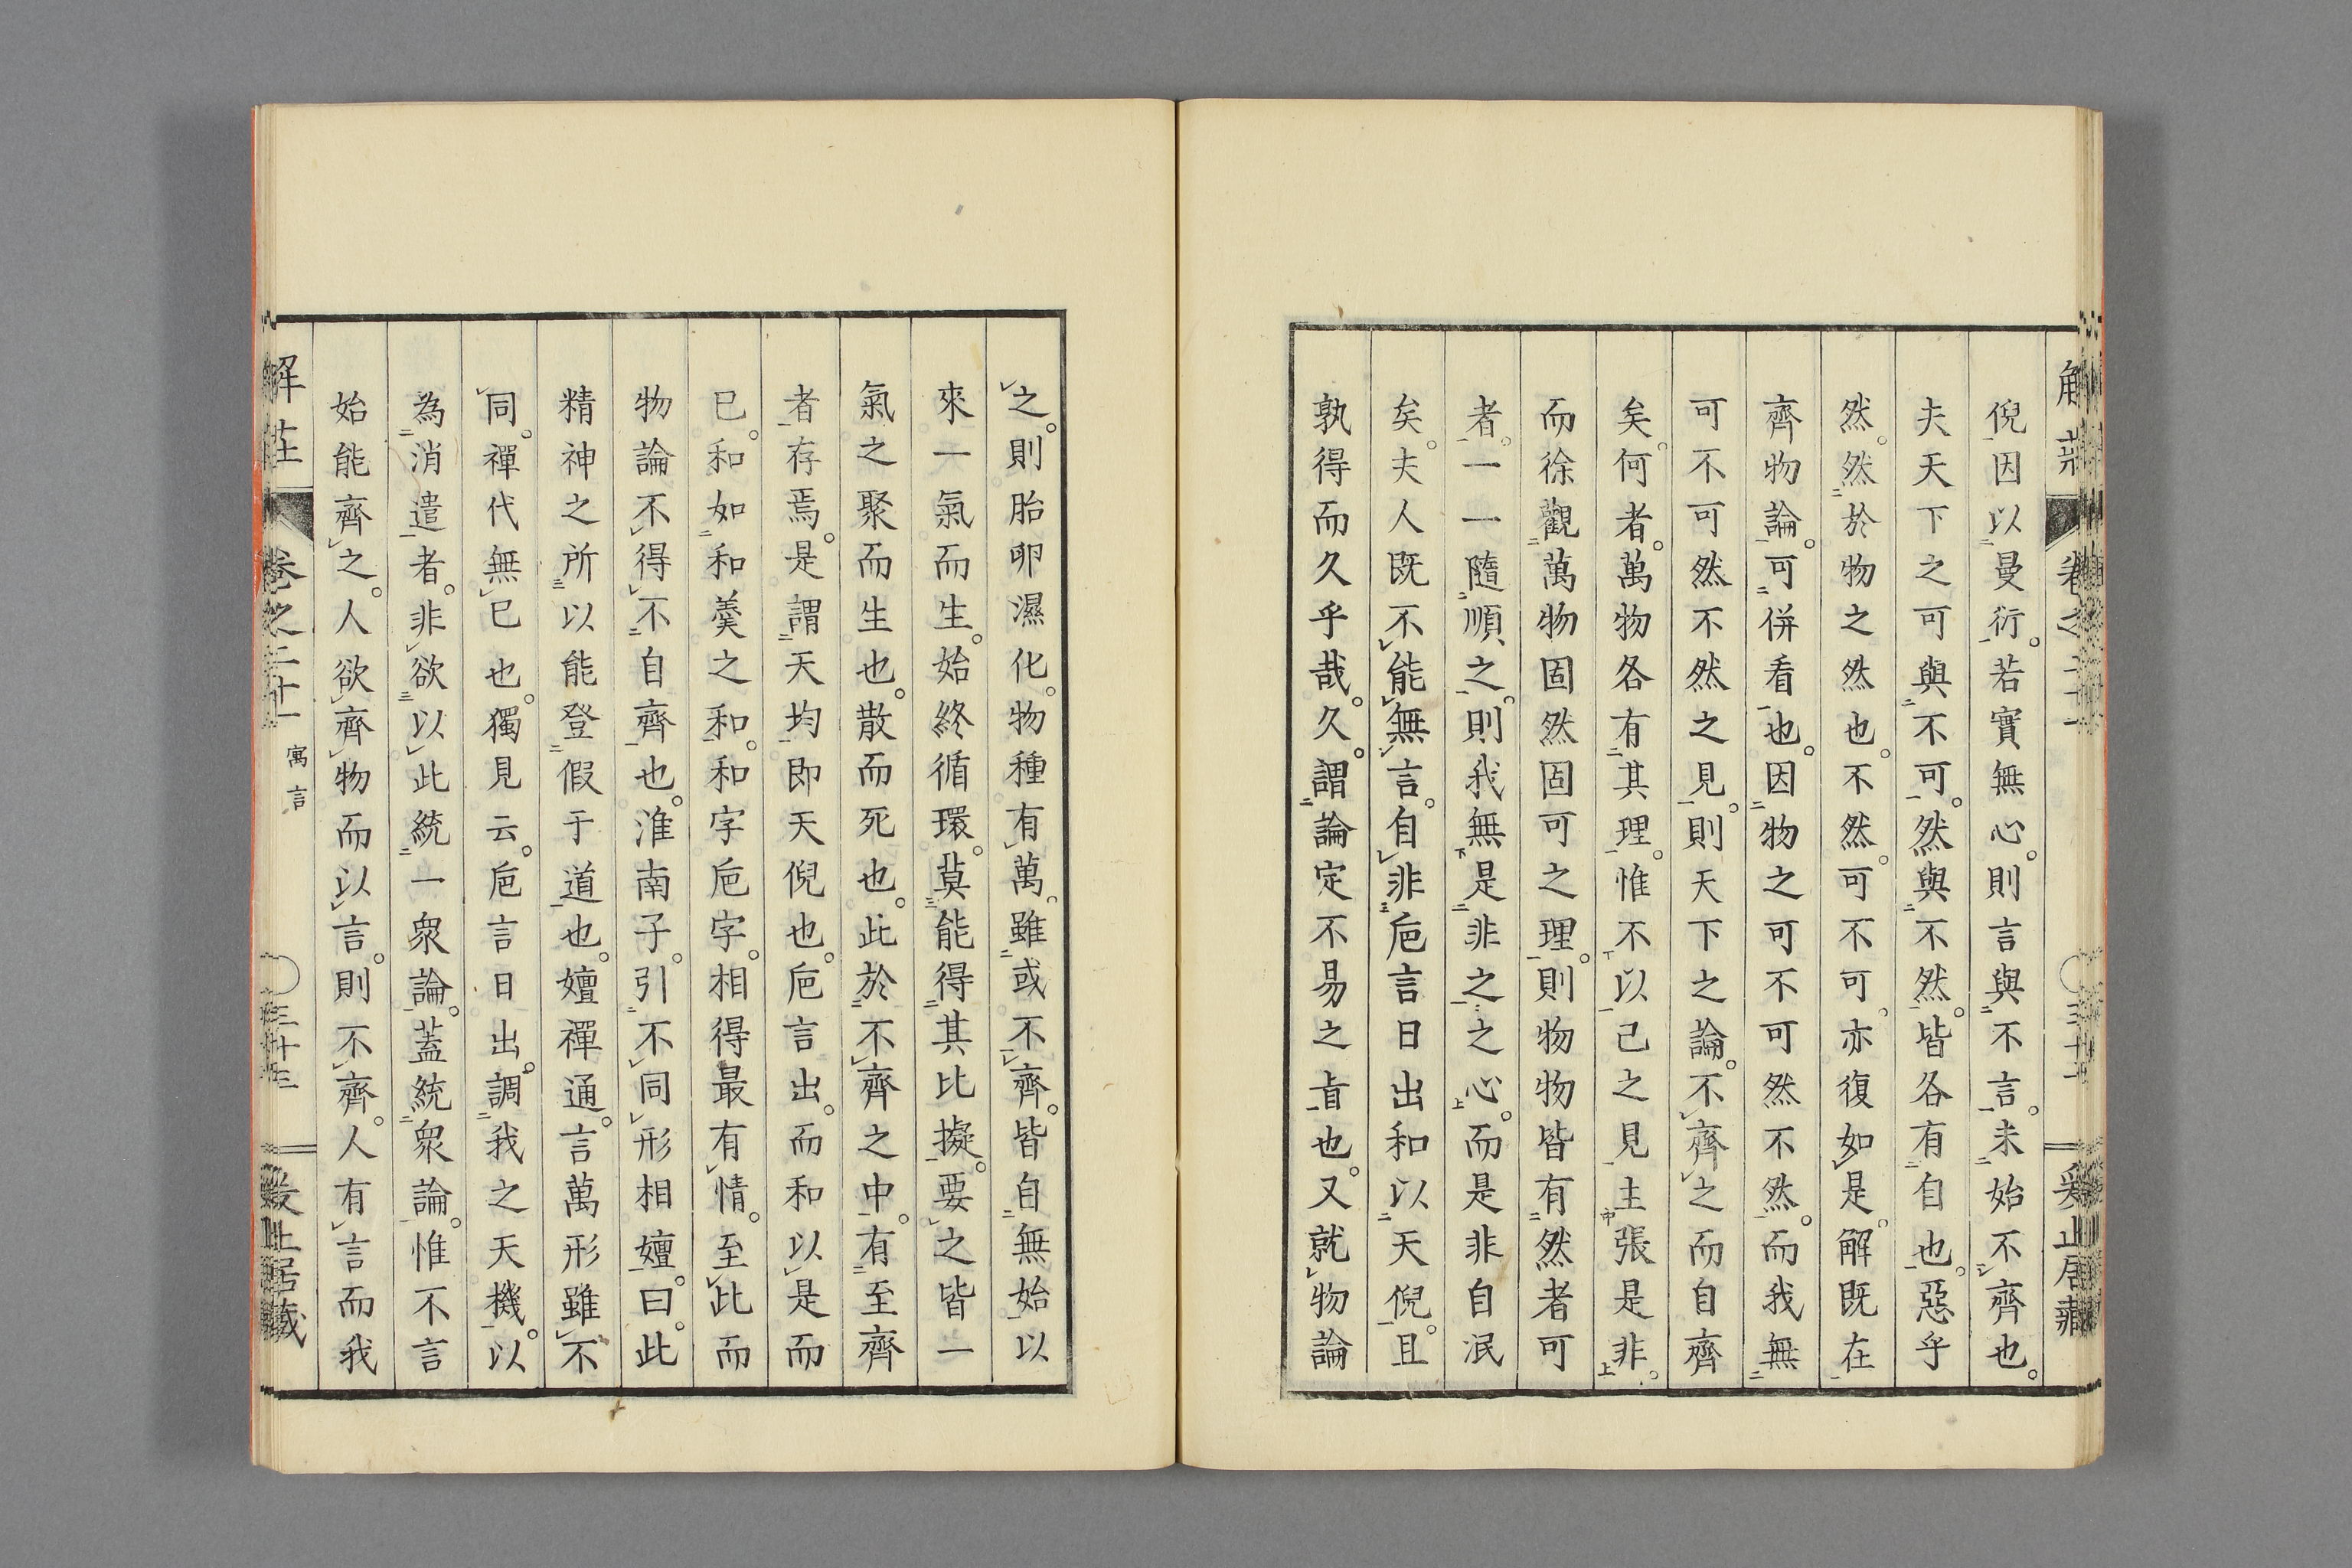 倪因以曼衍。若實無心。則言與不言。未始不齊也。
夫天下之可與不可。然與不然。皆各有自也。惡乎
然。然於物之然也。不然。可不可。亦復如是。解既在
齊物論。可併看也。因物之可不可然不然。而我無
可不可然不然之見。則天下之論。不齊之而自齊
矣。何者。萬物各有其理。惟不以己之見主張是非。
而徐觀萬物固然固可之理。則物物皆有然者可
者。一一隨順之。則我無是非之之心。而是非自泯
矣。夫人既不能無言。自非巵言日出和以天倪。且
孰得而久乎哉。久。謂論定不易之㫖也。又就物論
之。則胎卵濕化。物種有萬。雖或不齊。皆自無始以
來一氣而生。始終循環。莫能得其比擬。要之皆一
氣之聚而生也。散而死也。此於不齊之中。有至齊
者存焉。是謂天均即天倪也。巵言出。而和以是而
已。和如和羹之和。和字巵字。相得最有情。至此而
物論不得不自齊也。淮南子。引不同形相嬗。曰。此
精神之所以能登假于道也。嬗禪通。言萬形雖不
同。禪代無已也。獨見云。巵言日出。調我之天機。以
為消遣者。非欲以此統一衆論。蓋統衆論。惟不言
始能齊之。人欲齊物而以言。則不齊。人有言而我
解莊 卷之二十一 寓言 〇三十三